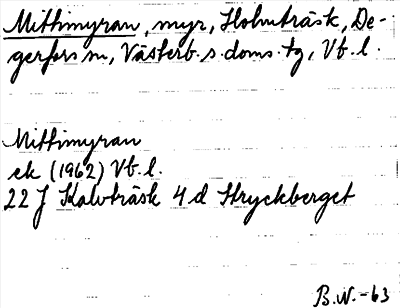 Mittimyran, myr, Holmträsk, De-
gerfors sn, Västerb. s. doms. tg, Vb. l.
Mittimyran
ek (1962) Vb. l.
22 J Kalvträsk 4 d Stryckberget
B.W.-63